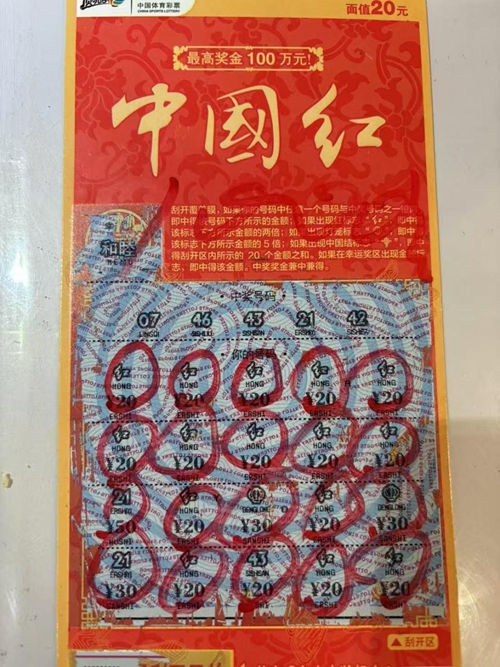 中国体育彩票
CHINA SPORTS LOTTERY
面值20元
最高奖金100万元!
中國红
刮开覆盖膜,如果你的号码中任
即中得
该标志下方所示金额的两倍;如果出现灯笼标
该标志下方所示金额的5倍;如果出现中国结标
得刮开区内所示的20个金额之和。如果在幸运奖区出现金
志,即中得该金额。中奖奖金兼中兼得。
和睦
中奖号码
07 46 43 21 42
LINGQI SISHILIU SISHISAN ERSHIYI SISHIER
你的号码
红 红 红 红 红
HONG HONG HONG HONG HONG
¥20 ¥20 ¥20 ¥20 ¥20
ERSHI ERSHI ERSHI ERSHI ERSHI
红 红 红 红 红
HONG HONG HONG HONG HONG
¥20 ¥20 ¥20 ¥20 ¥20
ERSHI ERSHI ERSHI ERSHI ERSHI
21 红 红
ERSHIYI HONG DENGLONG HONG DENGLONG
¥50 ¥20 ¥30 ¥20 ¥30
WUSHI ERSHI SANSHI ERSHI SANSHI
21 红 43 红 红
ERSHIYI HONG SISHISAN HONG HONG
¥30 ¥20 ¥20 ¥20 ¥20
SANSHI ERSHI ERSHI ERSHI ERSHI
刮开区